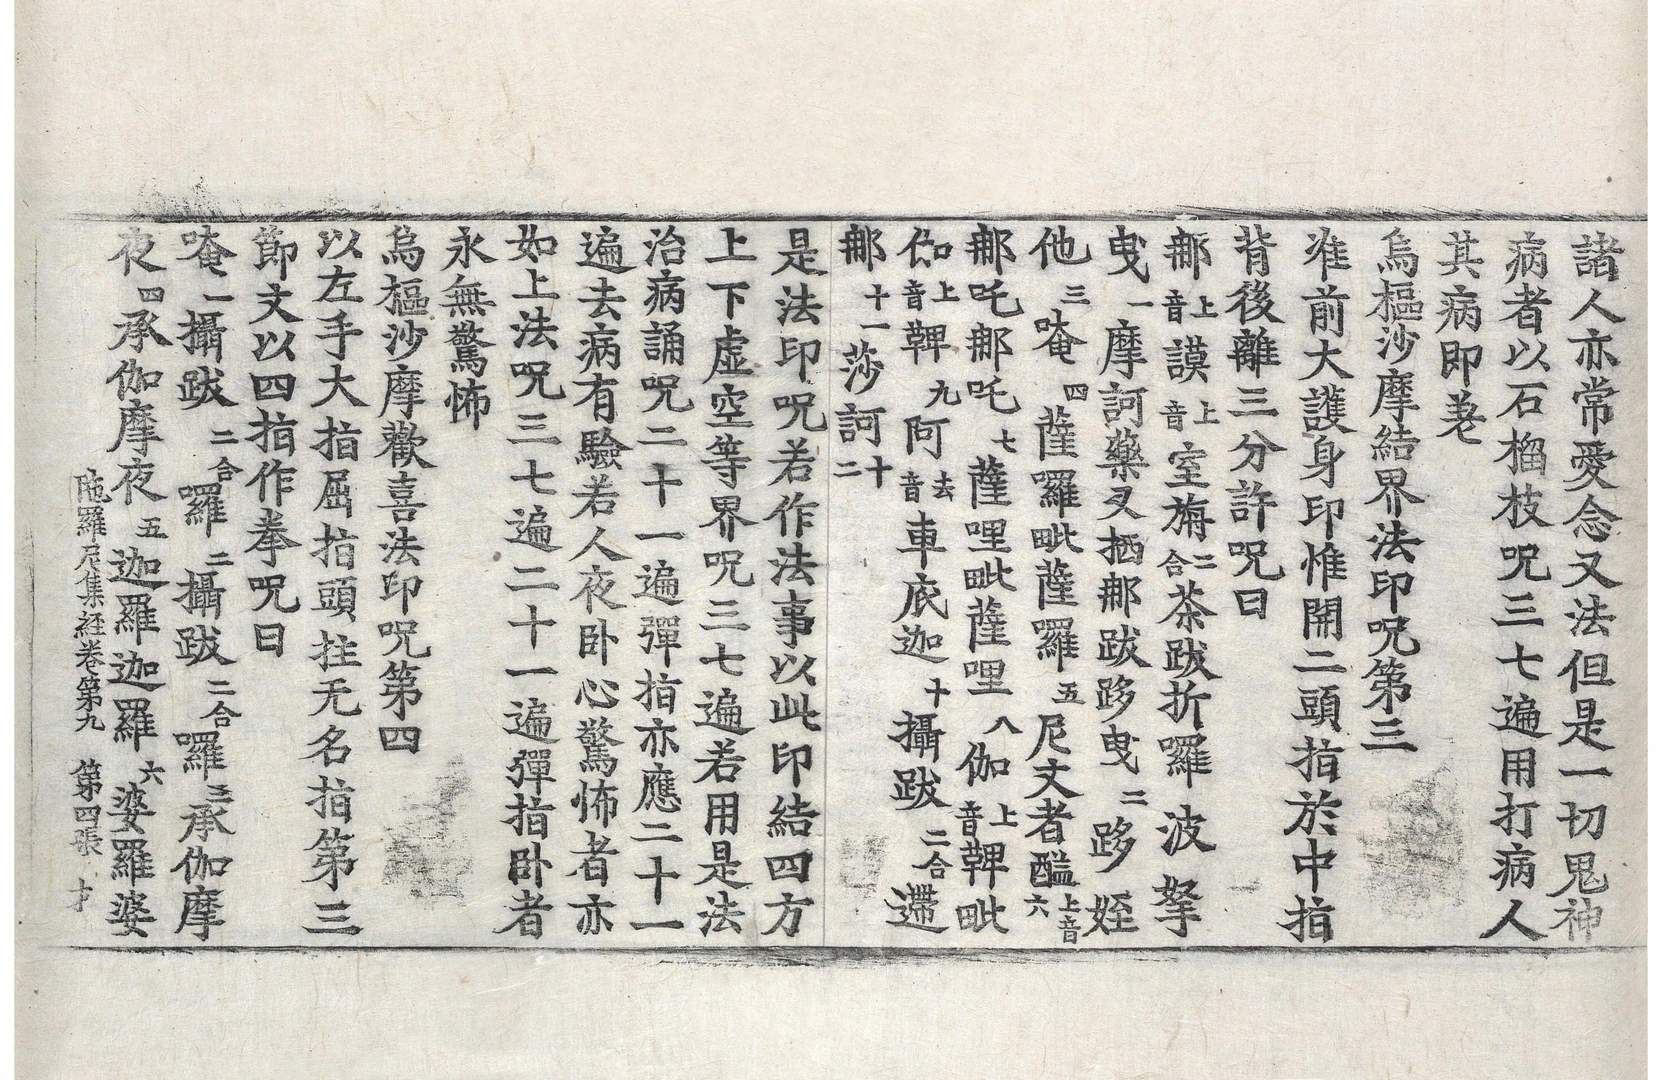 諸人亦常愛念又法但是一切鬼神
病者以石榴枝呪三七遍用打病人
其病即差
烏樞沙摩結界法印呪第三
准前大護身印惟開二頭指於中指
背後離三分許呪曰
那上音謨上音室旃二合茶跋折囉波拏
曳一摩訶藥叉栖那跋跢曳二跢姪
他三唵四薩囉毗薩囉五尼文者醯上音六
那吒那吒七薩哩毗薩哩八伽上音鞞毗
伽上音鞞九阿去音車底迦十攝跋二合遰
那十一莎訶十二
是法印呪若作法事以此印結四方
上下虛空等界呪三七遍若用是法
治病誦呪二十一遍彈指亦應二十一
遍去病有驗若人夜卧心驚怖者亦
如上法呪三七遍二十一遍彈指卧者
永無驚怖
烏樞沙摩歡喜法印呪第四
以左手大指屈指頭拄无名指第三
節文以四指作拳呪曰
唵一攝跋二合囉二攝跋二合囉三承伽摩
夜四承伽摩夜五迦羅迦羅六婆羅婆
陁羅尼集経卷第九 第四張 才